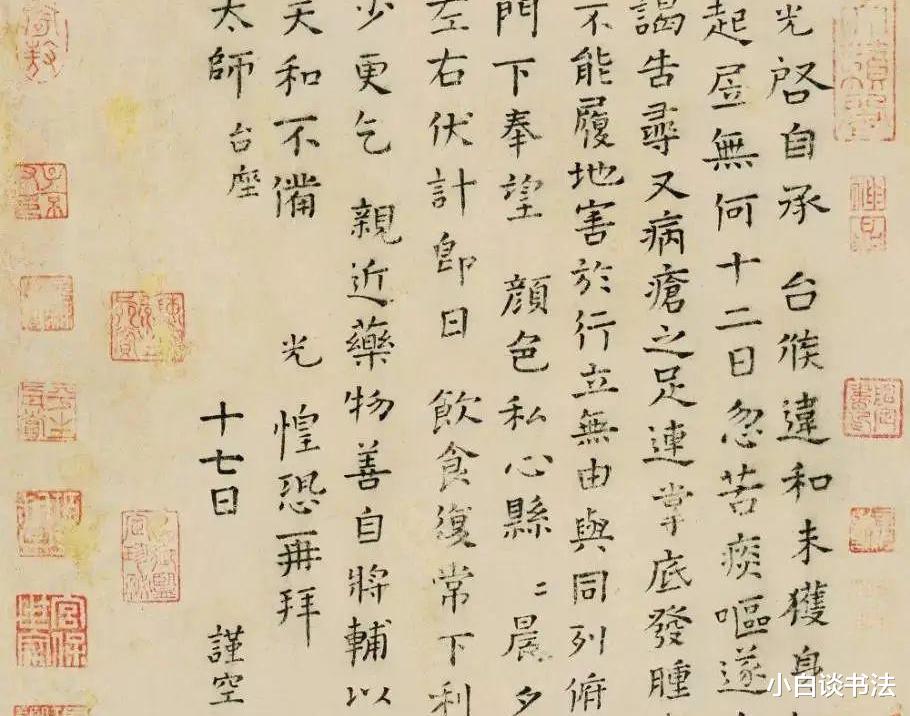 光啓自承 台候違和未獲身
起居無何十二日忽苦痰嘔遂
謁告尋又病瘡之足連掌底發腫
不能履地害於行立無由與同列俯
門下奉望 顏色私心縣〻晨夕
左右伏計即日 飲食復常下利
少更乞 親近藥物善自將輔以
天和不備 光 惶恐再拜
太師 台座
十七日 謹空
小白谈书法